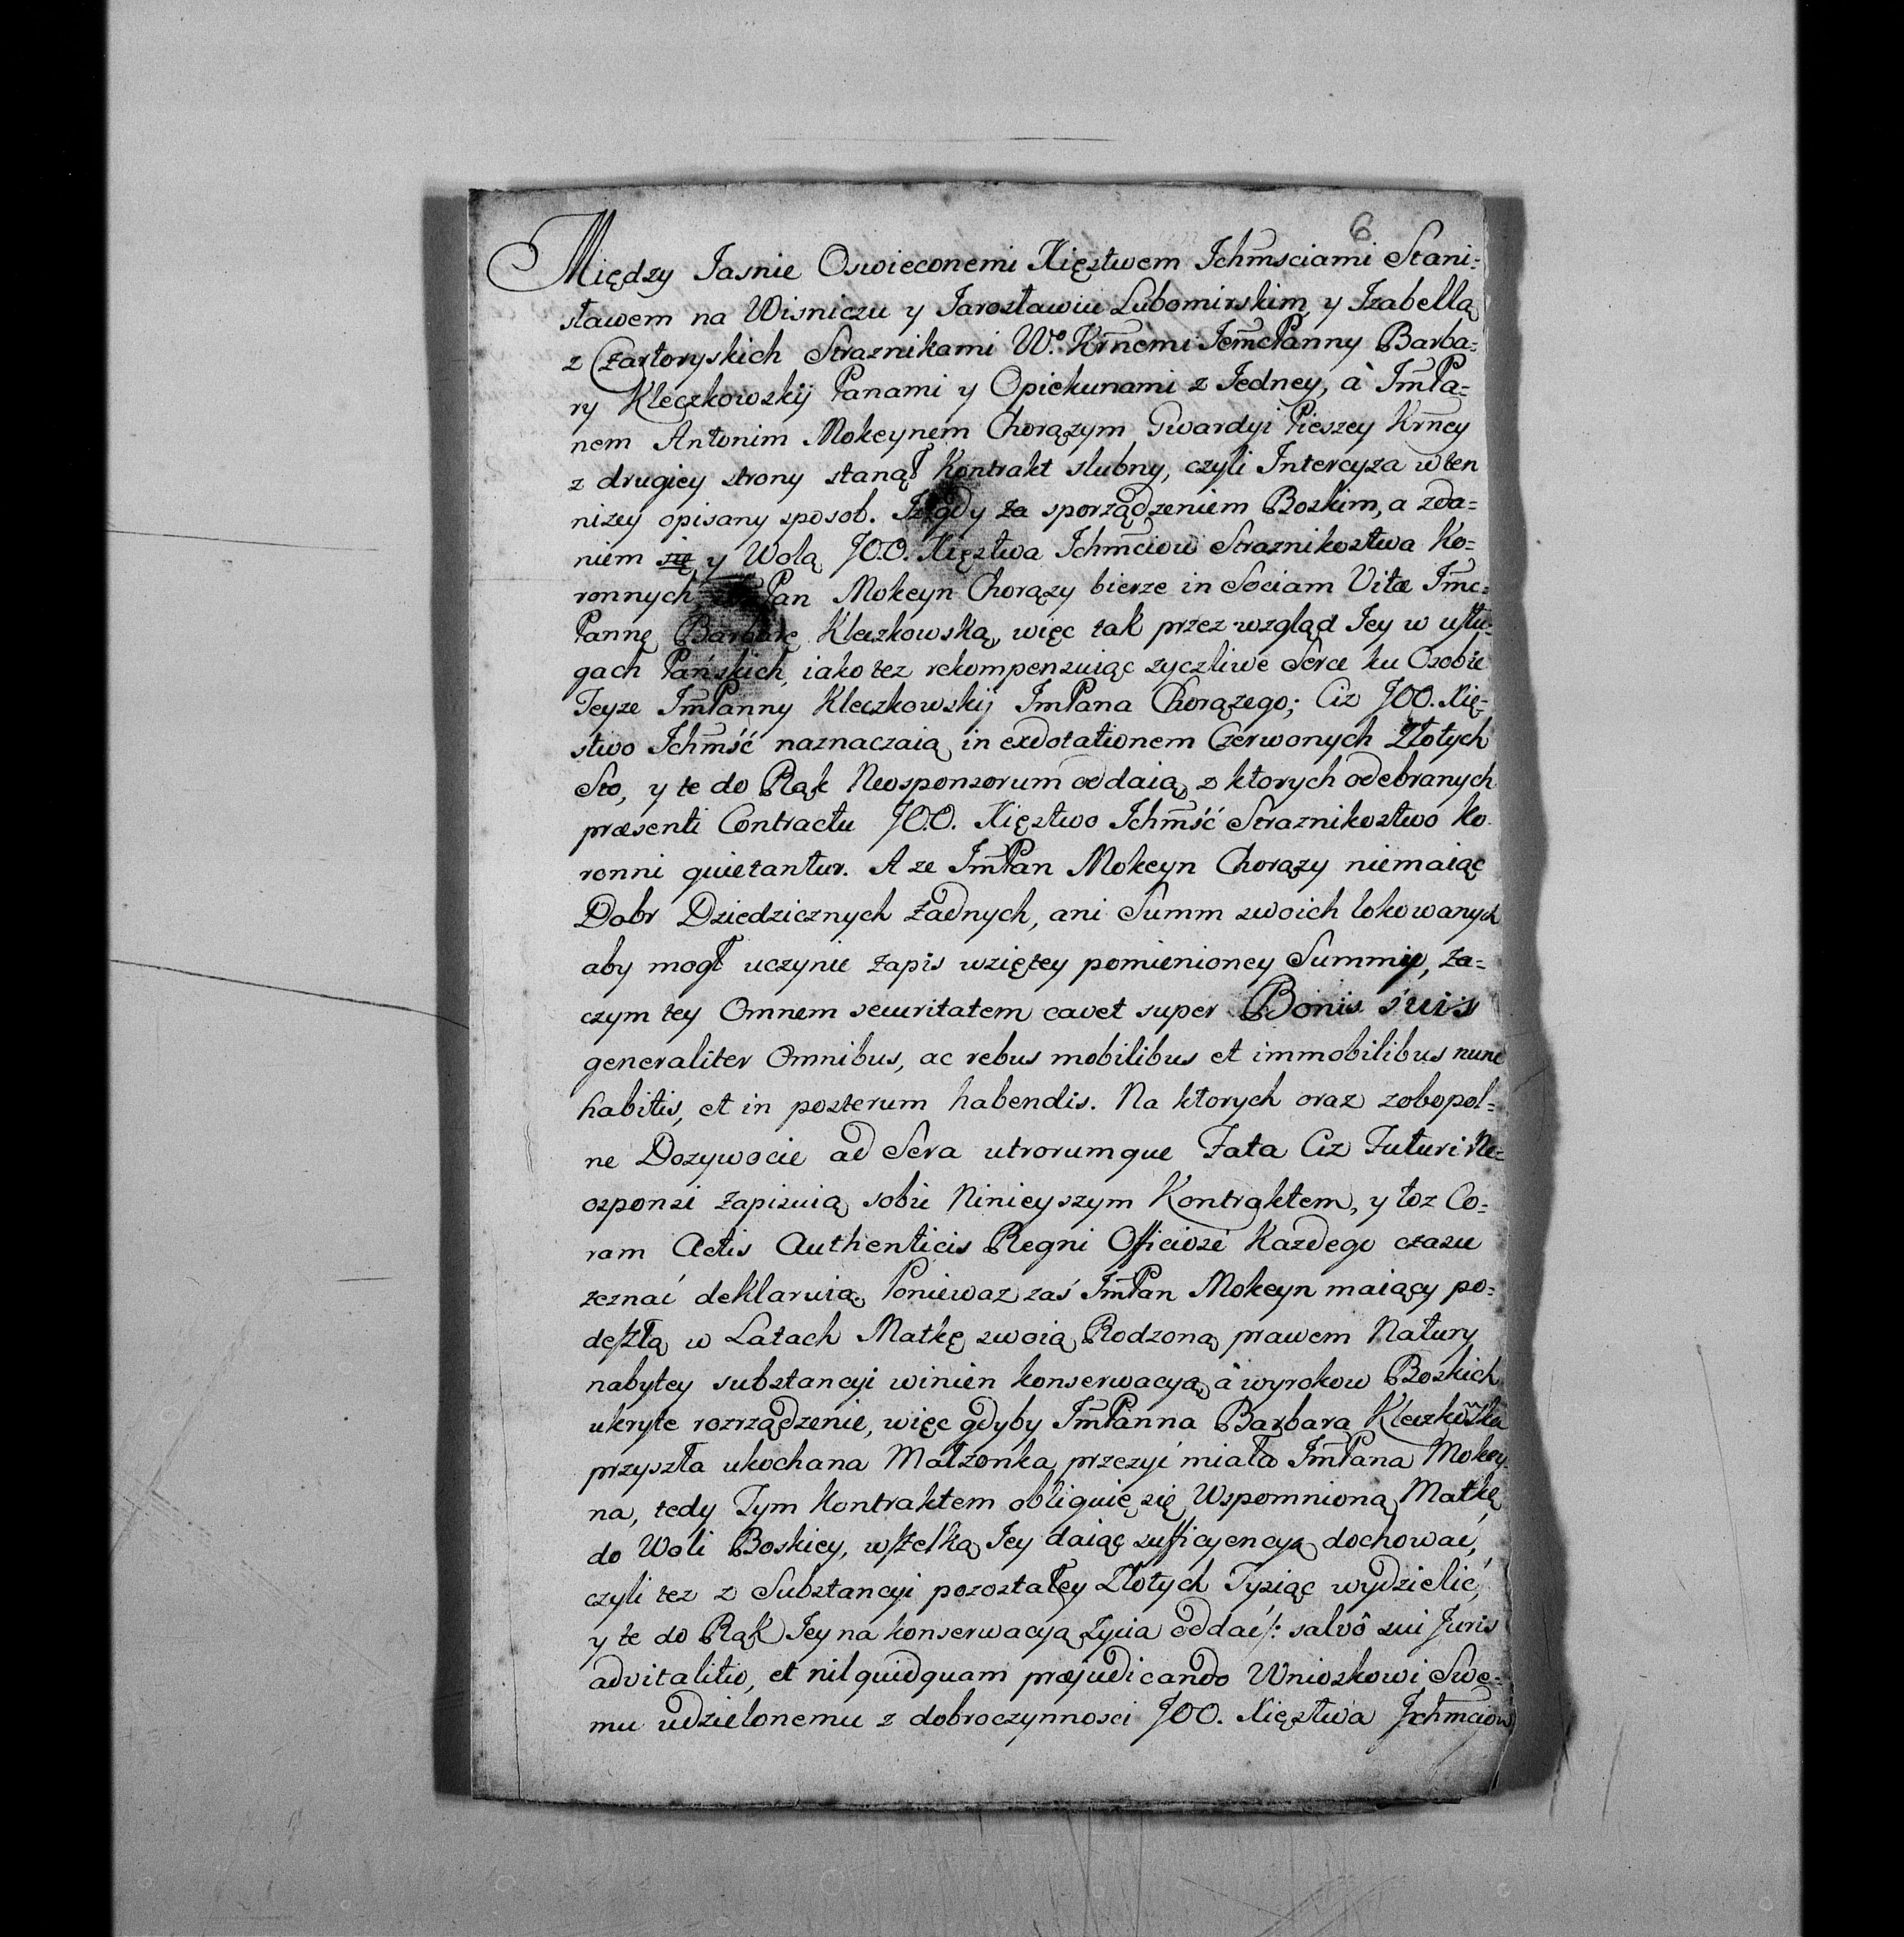 6
Między Jasnie Oswieconemi Xięstwem Ichmsciami Stani-
sławem na Wisniczu y Jarosławiu Lubomirskim, y Izabellą
z Czartoryskich Straznikami W.º Krnemi Jemc Panny Barba-
ry Kleczkowskij Panami y Opiekunami z Jedney, à JmPa-
nem Antonim Mokeynem Chorązym Gwardyi Pieszey Krney
z drugiey strony stanął Kontrakt slubny, czyli Intercyza w ten
nizey opisany sposob. Iż gdy za sporządzeniem Boskim, a zda-
niem się y Wolą JO.O. Xięstwa Ichmciow Straznikostwa Ko-
ronnych Pan Mokeyn Chorązy bierze in Sociam Vitæ Jmc-
Pannę Barbarę Kleczkowską, więc tak przez wzgląd Jey w usłu-
gach Pańskich, iako tez rekompensuiąc zyczliwe Serce ku Osobie
Teyze JmPanny Kleczkowskij JmPana Chorązego; Ciz JOO. Xię-
stwo Ichmść naznaczaią in exdotationem Czerwonych Złotych
Sto, y te do Rąk Neosponsorum oddaią, z ktorych odebranych
præsenti Contractu JO.O. Xięstwo Ichmść Straznikostwo Ko-
ronni quietantur. A ze JmPan Mokeyn Chorązy niemaiąc
Dobr Dziedzicznych Zadnych, ani Summ swoich lokowanych
aby mogł uczynic zapis wziętey pomienioney Summy, za-
czym tey Omnem securitatem cavet super Bonis suis
generaliter Omnibus, ac rebus mobilibus et immobilibus nunc
habitis, et in posterum habendis. Na ktorych oraz zobopol-
ne Dozywocie ad Sera utrorumque Fata Ciz Futuri Ne-
osponsi zapisuią sobie Ninieyszym Kontraktem, y toz Co-
ram Actis Authenticis Regni Officiose Kazdego czasu
zeznać deklaruią. Poniewaz zas JmPan Mokeyn maiący po-
deszłą w Latach Matkę swoią Rodzoną prawem Natury
nabytey substancyi winien konserwacyą, à wyrokow Boskich
ukryte rozrządzenie, więc gdyby JmPanna Barbara Kleczkowska
przyszła ukochana Małzonka, przezyć miała JmPana Mokey-
na, tedy Tym Kontraktem obliguie się, Wspomnioną Matkę
do Woli Boskiey, wszelką Jey daiąc sufficyencyą dochowac,
czyli tez z Substancyi pozostałey Złotych Tysiąc wydzielić,
y te do Rąk Jey na konserwacyą zycia oddać /: salvô sui Juris
advitalitio, et nil quidquam præjudicando Wnioskowi Swe-
mu udzielonemu z dobroczynnosci JOO. Xięstwa Ichmciow